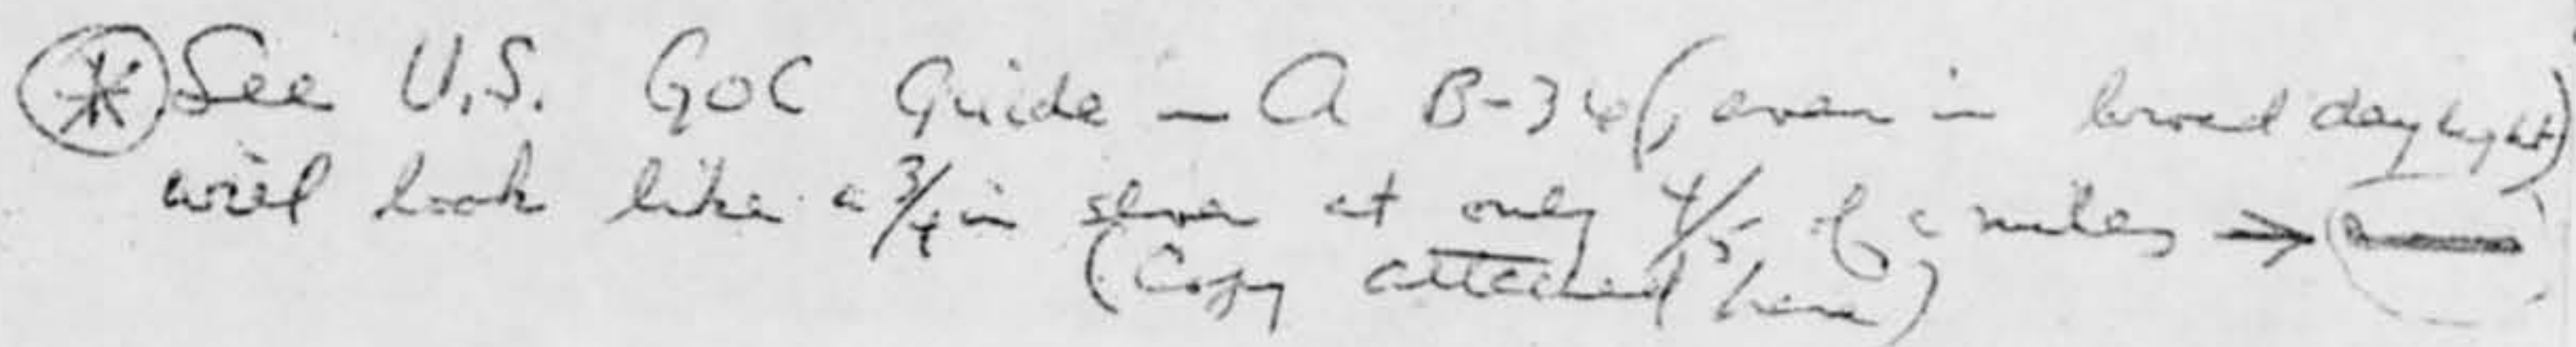 * See U.S. GOC Guide - A B-36 (, even in broad daylight)
will look like a 3/4 in at only 4/5 of a miles →
(Copy attached here)